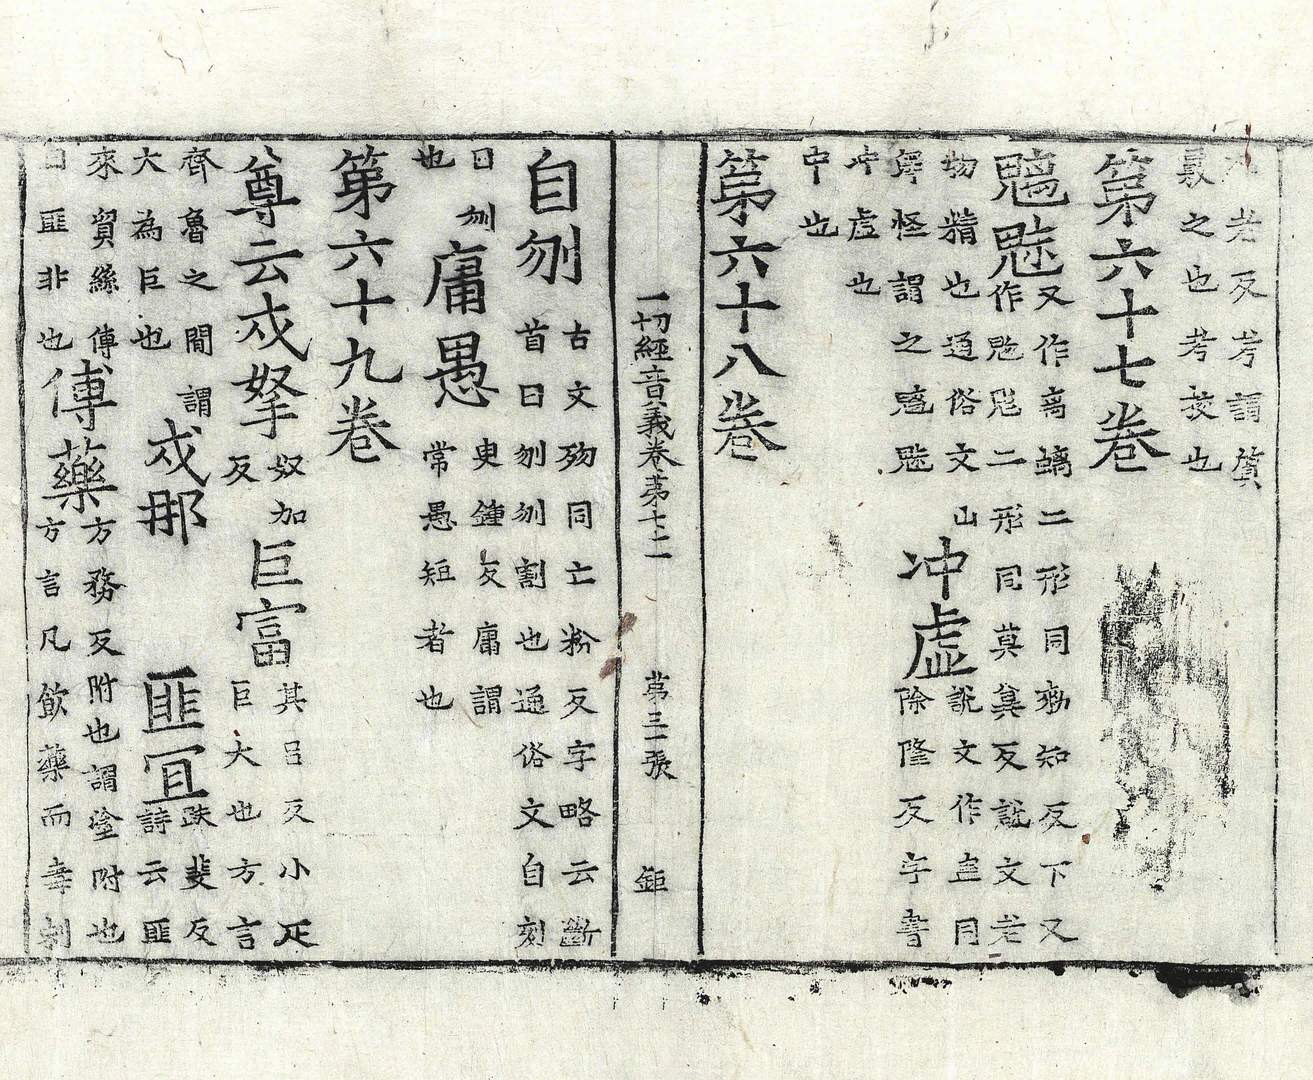 老反考謂質
覈之也考挍也
第六十七卷
魑魅 又作离螭二形同勑知反下又
作鬽彪二形同莫兾反說文老
物精也通俗文山
澤怪謂之魑魅 冲虛 說文作盅同
除隆反字書
冲虛也
中也
第六十八卷
一切經音義卷苐二十二 苐三一張 鉅
自刎 古文歾同亡粉反字略云斷
首曰刎刎割也通俗文自刻
曰刎
也 庸愚 臾鍾反庸謂
常愚短者也
第六十九卷
尊云戍拏 奴加
反 巨富 其呂反小疋
巨大也方言
齊魯之閒謂
大為巨也 戍那 匪宜 趺斐反
詩云匪
來貿絲傳
曰匪非也 傅藥 方務反附也謂塗附也
方言凡飲藥而毒剌